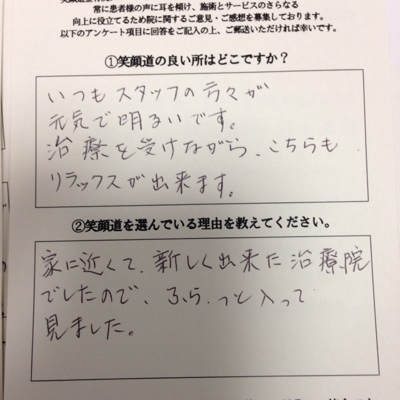 常に患者様の声に耳を傾け、施術とサービスのさらなる
向上に役立てるため院に関するご意見・ご感想を募集しております。
以下のアンケート項目に回答をご記入の上、ご郵送いただければ幸いです。
①笑顔道の良い所はどこですか？
いつもスタッフの方々が
元気で明るいです。
治療を受けながら、こちらも
リラックスが出来ます。
②笑顔道を選んでいる理由を教えてください。
家に近くて、新しく出来た治療院
でしたので、ふらっと入って
見ました。